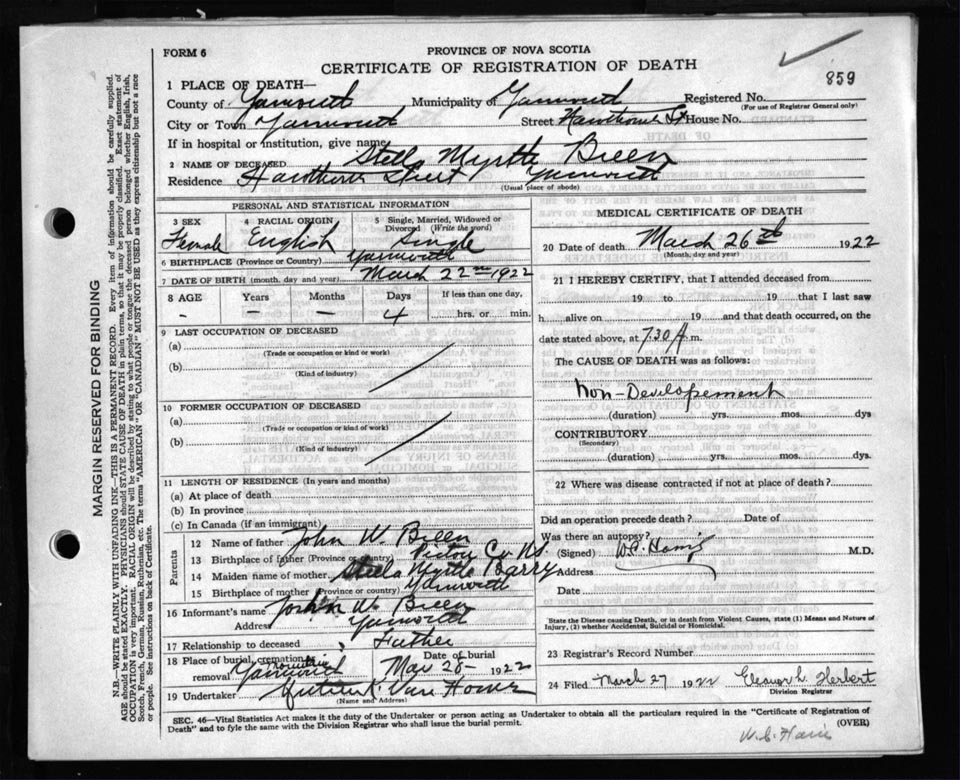 FORM 6
PROVINCE OF NOVA SCOTIA
CERTIFICATE OF REGISTRATION OF DEATH
859
1 PLACE OF DEATH—
County of Yarmouth Municipality of Yarmouth Registered No.
(For use of Registrar General only)
City or Town Yarmouth Street Hawthorne St House No.
If in hospital or institution, give name
2 NAME OF DECEASED Stella Myrtle Breen
Residence Hawthorne Street Yarmouth
(Usual place of abode)
PERSONAL AND STATISTICAL INFORMATION
3 SEX
Female
4 RACIAL ORIGIN
English
5 Single, Married, Widowed or Divorced (Write the word)
Single
6 BIRTHPLACE (Province or Country) Yarmouth
7 DATE OF BIRTH (month, day and year) March 22nd 1922
8 AGE Years Months Days If less than one day,
- — — 4 hrs. or min.
9 LAST OCCUPATION OF DECEASED
(a)
(Trade or occupation or kind or work)
(b)
(Kind of industry)
10 FORMER OCCUPATION OF DECEASED
(a)
(Trade or occupation or kind of work)
(b)
(Kind of industry)
11 LENGTH OF RESIDENCE (In years and months)
(a) At place of death
(b) In province
(c) In Canada (if an immigrant)
Parents
12 Name of father John W. Breen
13 Birthplace of father (Province or country) Pictou Co NS.
14 Maiden name of mother Stella Myrtle Barry
15 Birthplace of mother (Province or country) Yarmouth
16 Informant's name John W. Breen
Address Yarmouth
17 Relationship to deceased Father
18 Place of burial, cremation or removal Yarmouth Mountain
Date of burial
Mar 28- 1922
19 Undertaker Van Horne
(Name and Address)
MEDICAL CERTIFICATE OF DEATH
20 Date of death March 26th 1922
(Month, day and year)
21 I HEREBY CERTIFY, that I attended deceased from
19 to 19 that I last saw
h alive on 19 and that death occurred, on
date stated above, at 7.30 A. m.
The CAUSE OF DEATH was as follows:
Non-Developement
(duration) yrs. mos. dys
CONTRIBUTORY
(Secondary)
(duration) yrs. mos. dys.
22 Where was disease contracted if not at place of death?
Did an operation precede death? Date of
Was there an autopsy?
(Signed) W.C. Harris M.D.
Address
Date
State the Disease causing Death, or in death from Violent Causes, state (1) Means and Nature of Injury, (2) whether Accidental, Suicidal or Homicidal.
23 Registrar's Record Number
24 Filed March 27 1922 Eleanor L. Herbert
Division Registrar
SEC. 46—Vital Statistics Act makes it the duty of the Undertaker or person acting as Undertaker to obtain all the particulars required in the "Certificate of Registration of
Death" and to fyle the same with the Division Registrar who shall issue the burial permit.
(OVER)
W. C. Harris
MARGIN RESERVED FOR BINDING
N.B.—WRITE PLAINLY WITH UNFADING INK—THIS IS A PERMANENT RECORD. Every item of information should be carefully supplied.
AGE should be stated EXACTLY. PHYSICIANS should STATE CAUSE OF DEATH in plain terms, so that it may be properly classified. Exact statement of
OCCUPATION is very important. RACIAL ORIGIN will be described by stating to what people or tongue the deceased person belonged whether English, Irish,
Scotch, French, German, Russian, Ruthenian, etc. The terms "AMERICAN" OR "CANADIAN" MUST NOT BE USED as they express citizenship but not a race
or people. See instructions on back of Certificate.